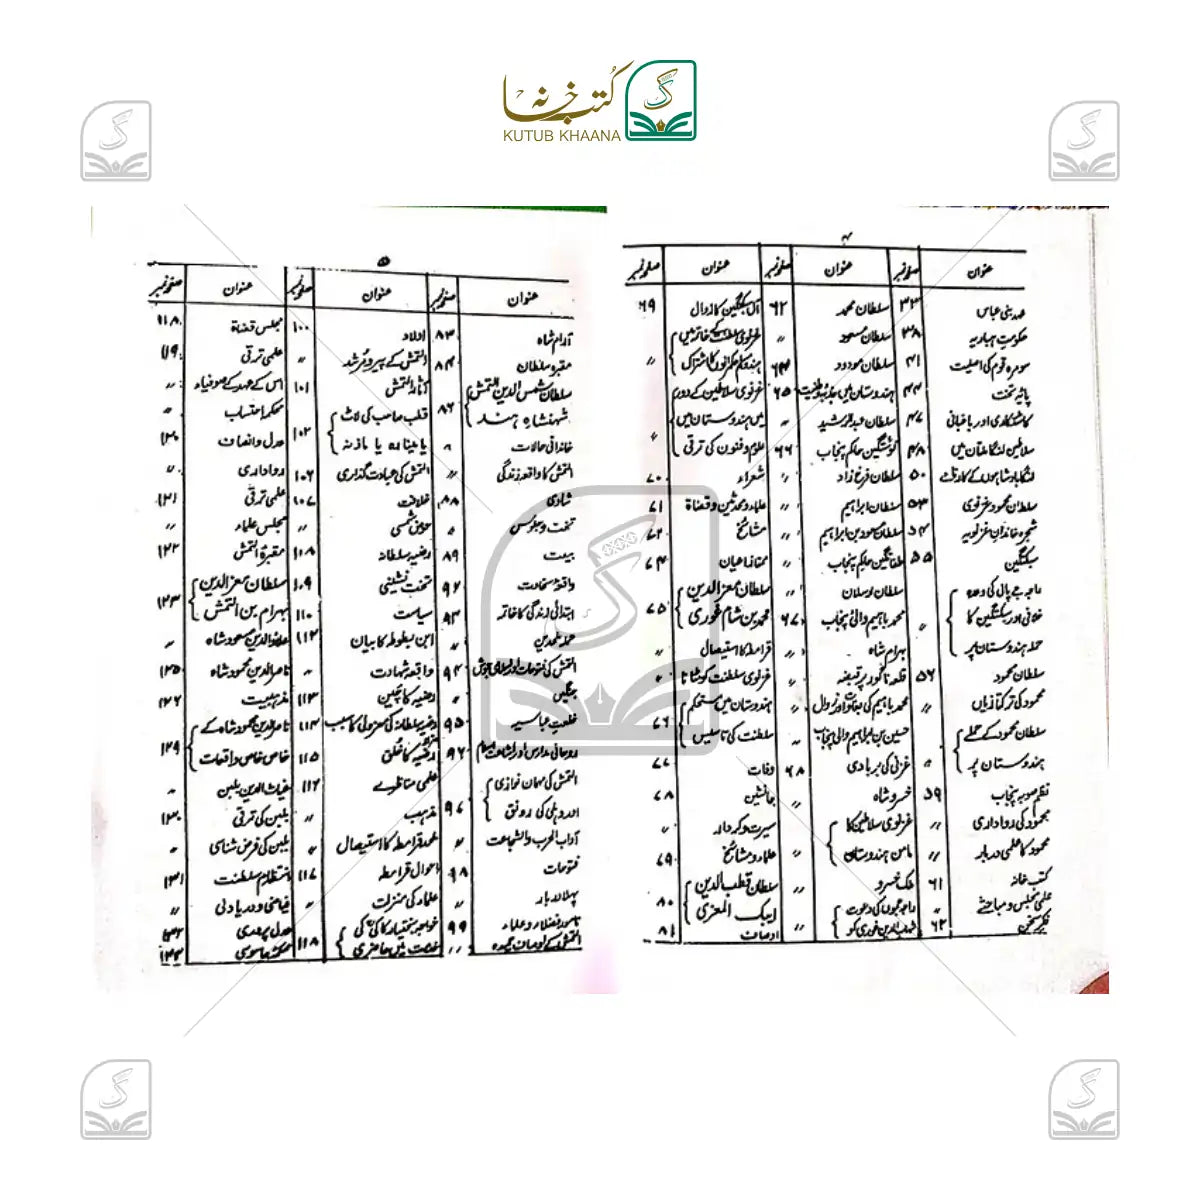 کتب خانہ
KUTUB KHAANA
۴
عنوان
صفحہ نمبر
عنوان
صفحہ نمبر
عنوان
صفحہ نمبر
عہد بنی عباس ۳۳
حکومت ہباریہ ۳۸
سومرہ قوم کی اصلیت ۴۱
پایہ تخت ۴۴
کاشتکاری اور باغبانی ۴۷
سلاطین لنگا ملتان میں ۴۸
سلطان محمود غزنوی ۵۳
شجرہ خاندان غزنویہ ۵۴
سبکتگین ۵۵
راجہ جے پال کی
حملہ ہندوستان پر
سلطان محمود ۵۶
محمود کی ترکتازیاں 〃
سلطان محمود کے حملے
ہندوستان پر 〃
نظم صوبہ پنجاب ۵۹
محمود کی رواداری 〃
محمود کا علمی دربار 〃
کتب خانہ ۶۱
علمی مجلس و مباحثے 〃
فکر سخن ۶۲
سلطان محمد ۶۲
سلطان مسعود 〃
سلطان مودود ۶۴
ہندوستان میں جذبہ وطنیت ۶۵
سلطان عبدالرشید 〃
نوشتگین حاکم پنجاب ۶۶
سلطان فرخ زاد 〃
سلطان ابراہیم 〃
سلطان مسعود بن ابراہیم 〃
طغاتگین حاکم پنجاب 〃
سلطان ارسلان 〃
محمد باہیم والئ پنجاب ۶۷
بہرام شاہ 〃
قلعہ ناگور پر قبضہ 〃
محمد باہیم کی بغاوت اور زوال
حسین بن ابراہیم والی پنجاب 〃
غزنی کی بربادی ۶۸
خسرو شاہ 〃
غزنوی سلاطین کا
مامن ہندوستان 〃
ملک خسرو 〃
شہاب الدین غوری کو 〃
آل سبکتگین کا زوال ۶۹
غزنوی سلطنت کے خاتمہ میں
غزنوی سلاطین کے دور
میں ہندوستان میں
علوم و فنون کی ترقی 〃
شعراء ۷۰
علماء و محدثین و قضاۃ ۷۱
مشائخ ۷۲
ممتاز اعیان ۷۴
سلطان معزالدین
محمد بن شام غوری ۷۵
قرامطہ کا استیصال 〃
غزنوی سلطنت کو مٹانا 〃
ہندوستان میں مستحکم
سلطنت کی تاسیس ۷۶
وفات ۷۷
جانشین ۷۸
سیرت و کردار 〃
علماء و مشائخ ۷۹
سلطان قطب الدین
ایبک المعزی ۸۰
اوصاف ۸۱
۵
عنوان
صفحہ نمبر
عنوان
صفحہ نمبر
عنوان
صفحہ نمبر
آرام شاہ ۸۳
مقبرہ سلطان ۸۴
سلطان شمس الدین التمش
شہنشاہ ہند ۸۶
خاندانی حالات 〃
التمش کا واقعہ زندگی 〃
شادی ۸۸
تخت و جلوس 〃
بیعت ۸۹
واقعہ سخاوت ۹۲
ابتدائی زندگی کا خاتمہ ۹۳
خلعت عباسیہ ۹۵
التمش کی مہمان نوازی
اور دہلی کی رونق ۹۷
آداب الحرب والشجاعت 〃
فتوحات ۹۸
پہلا دربار 〃
نامور فضلاء و علماء ۹۹
التمش کے اوصاف حمیدہ 〃
اولاد ۱۰۰
التمش کے پیر و مرشد 〃
آثار التمش ۱۰۱
قطب صاحب کی لاٹ
یا مینارہ یا ماذنہ ۱۰۲
التمش کی عبادت گذاری ۱۰۶
خلافت ۱۰۷
حوض شمسی 〃
رضیہ سلطانہ ۱۰۸
تخت نشینی ۱۰۹
سیاست ۱۱۰
ابن بطوطہ کا بیان ۱۱۲
واقعہ شہادت 〃
رضیہ کا بچپن ۱۱۳
رضیہ سلطانہ کی معزولی کا سبب ۱۱۴
رضیہ کا خلق ۱۱۵
علمی مناظرے ۱۱۶
مذہب 〃
عہد قرامطہ کا استیصال 〃
احوال قرامطہ ۱۱۷
علماء کی منزلت 〃
خواجہ بختیار کاکی کی
خدمت میں حاضری ۱۱۸
مجلس قضاۃ ۱۱۸
علمی ترقی ۱۱۹
اس کے عہد کے صوفیاء 〃
محکمہ احتساب 〃
عدل و انصاف ۱۲۰
رواداری 〃
علمی ترقی ۱۲۱
مجلس علماء 〃
مقبرۃ التمش ۱۲۲
سلطان معزالدین
بہرام بن التمش ۱۲۳
علاؤالدین مسعود شاہ 〃
ناصرالدین محمود شاہ ۱۲۵
مذہبیت ۱۲۶
ناصرالدین محمود شاہ کے
خاص خاص واقعات ۱۲۹
غیاث الدین بلبن 〃
بلبن کی ترقی ۱۳۰
بلبن کی فرض شناسی 〃
انتظام سلطنت ۱۳۱
فیاضی و دریا دلی 〃
عدل پروری
محکمہ جاسوسی